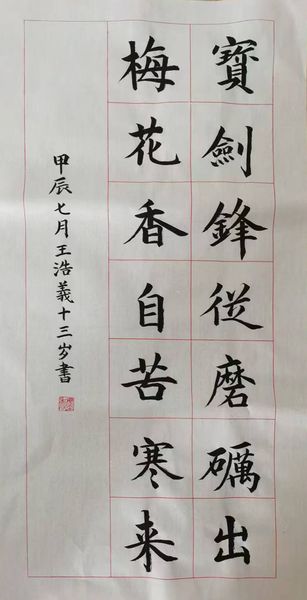 寶劍鋒從磨礪出
梅花香自苦寒来
甲辰七月王浩羲十三岁書